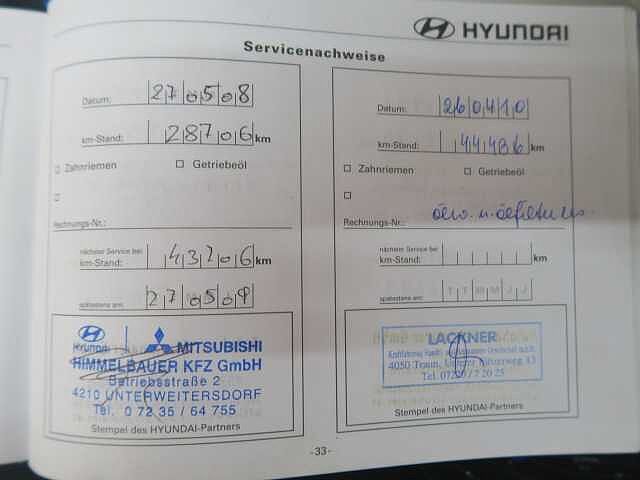 HYUNDAI
Servicenachweise
Datum: 270508
km-Stand: 28706 km
Zahnriemen Getriebeöl
Rechnungs-Nr.:
nächster Service bei
km-Stand: 43206 km
spätestens am: 270509
HYUNDAI MITSUBISHI
HIMMELBAUER KFZ GmbH
Betriebsstraße 2
4210 UNTERWEITERSDORF
Tel. 0 72 35 / 64 755
Stempel des HYUNDAI-Partners
Datum: 260410
km-Stand: 44486 km
Zahnriemen Getriebeöl
Rechnungs-Nr.:
nächster Service bei
km-Stand: km
spätestens am: T T M M J J
LACKNER
4050 Traun,
Tel.
Stempel des HYUNDAI-Partners
-33-